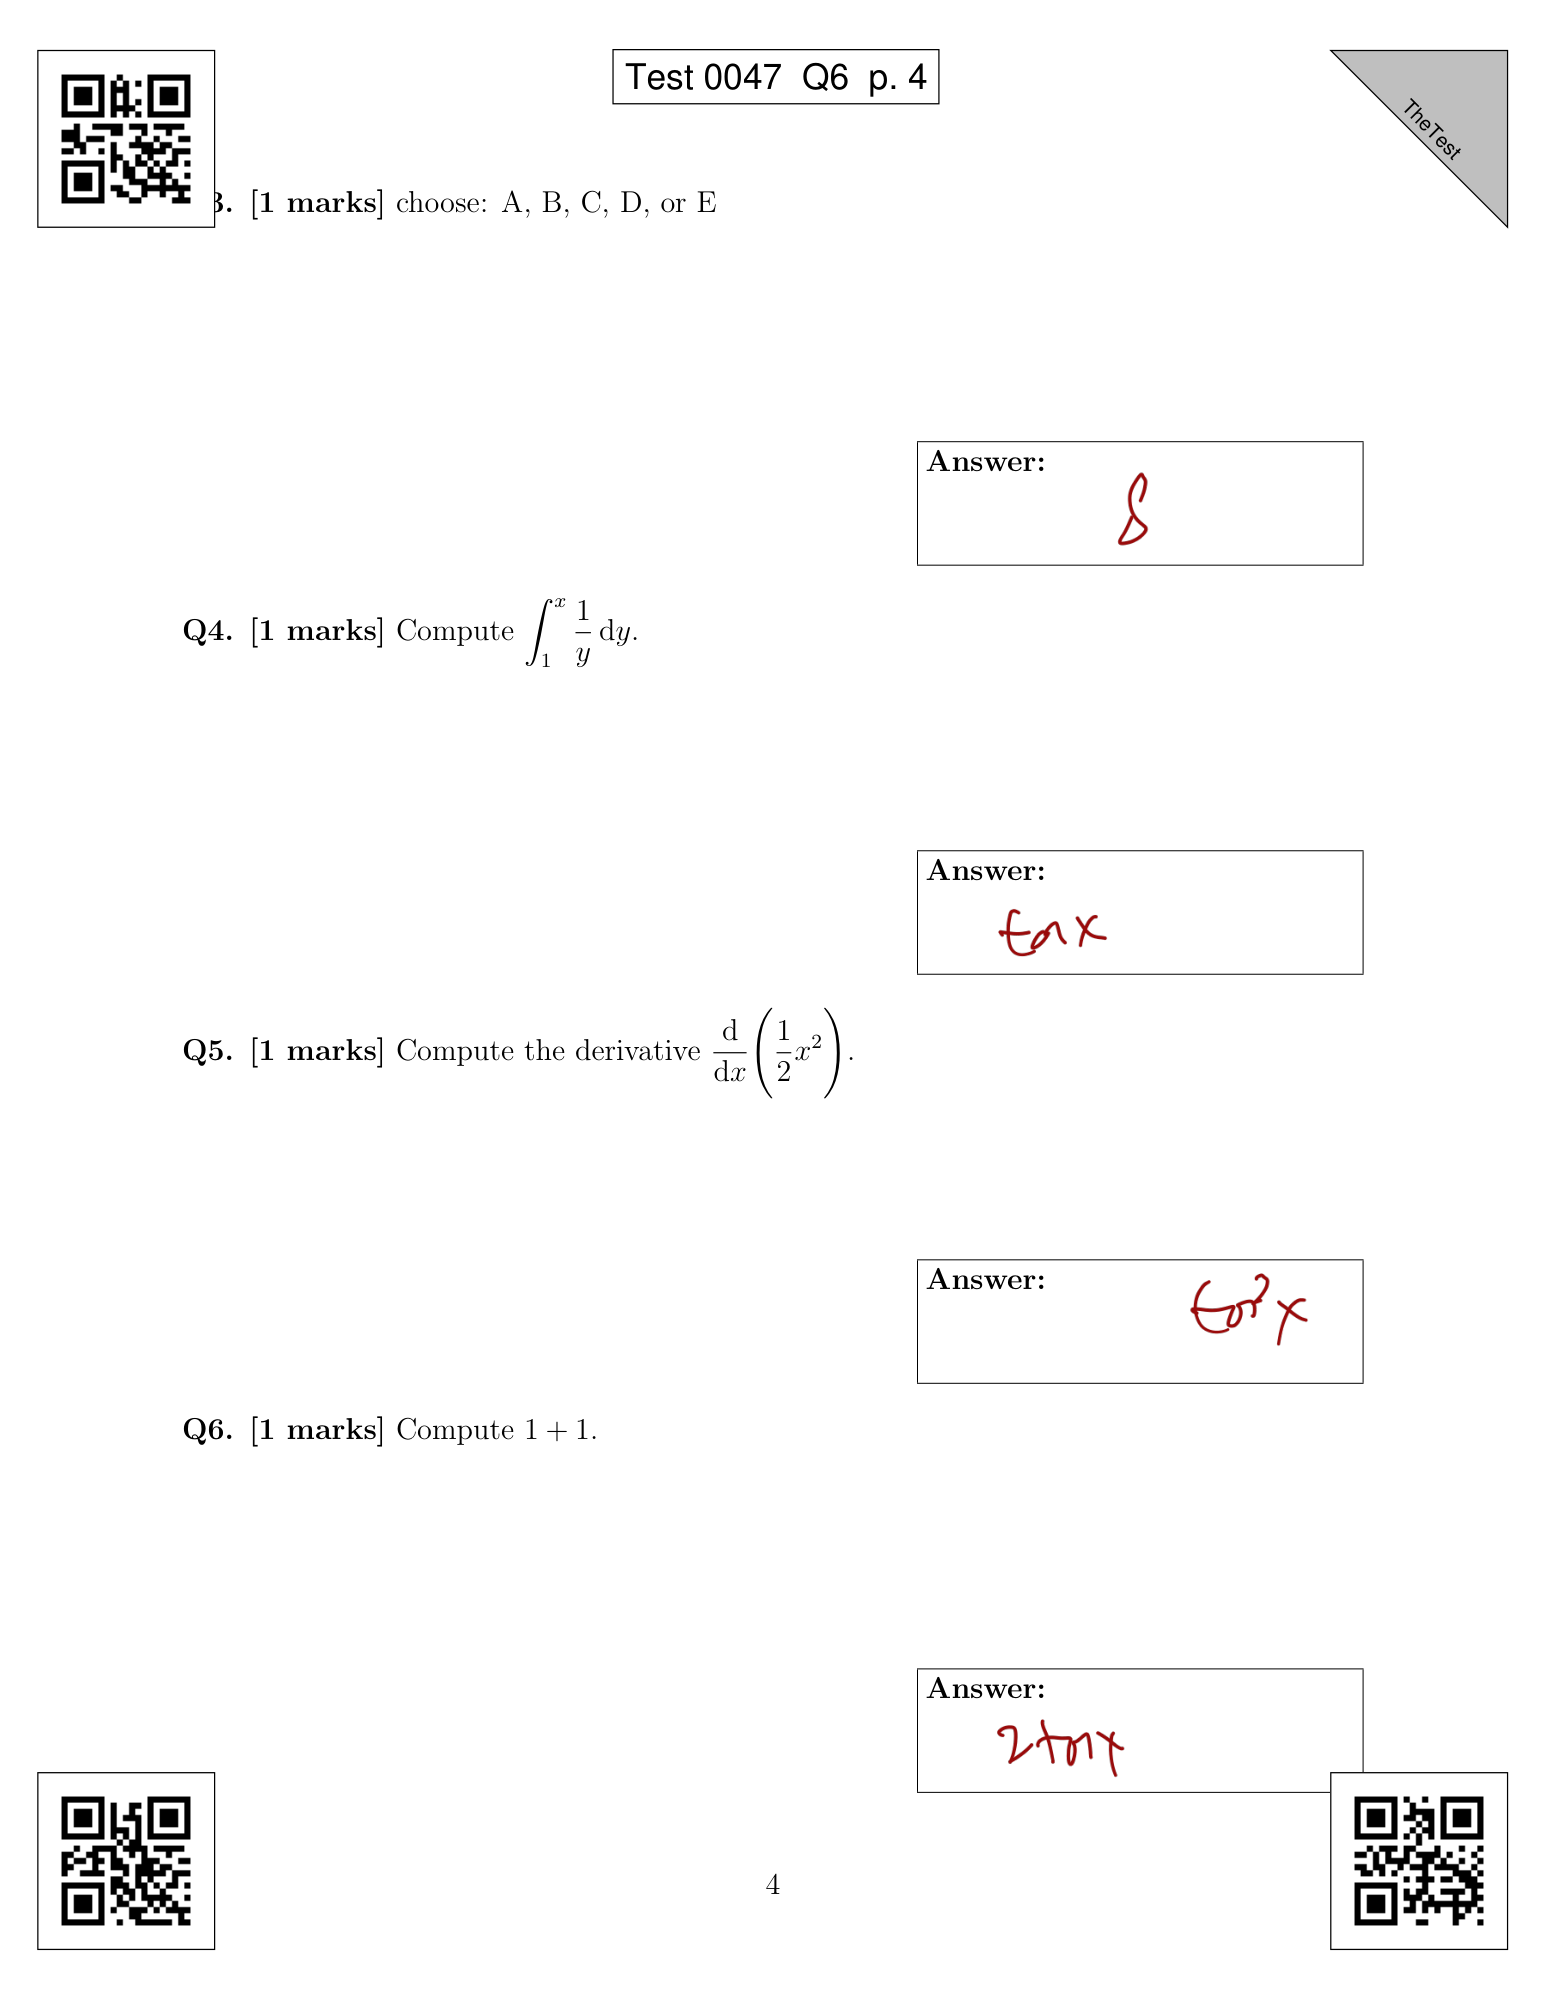 Test 0047 Q6 p. 4
TheTest
3. [1 marks] choose: A, B, C, D, or E
Answer:
8
Q4. [1 marks] Compute \int_1^x \frac{1}{y} dy.
Answer:
tan x
Q5. [1 marks] Compute the derivative \frac{d}{dx}\left(\frac{1}{2}x^2\right).
Answer:
tan² x
Q6. [1 marks] Compute 1 + 1.
Answer:
2tanx
4